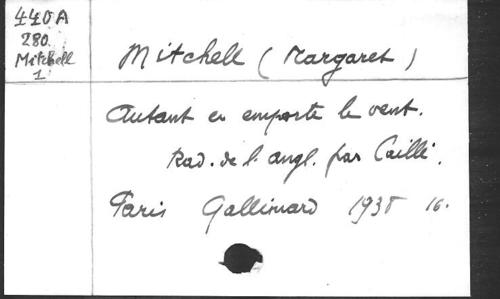 440A
280
Mitchell
1
Mitchell (Margaret)
Autant en emporte le vent.
Trad. de l'angl. par Cailli.
Paris Gallimard 1938 16.